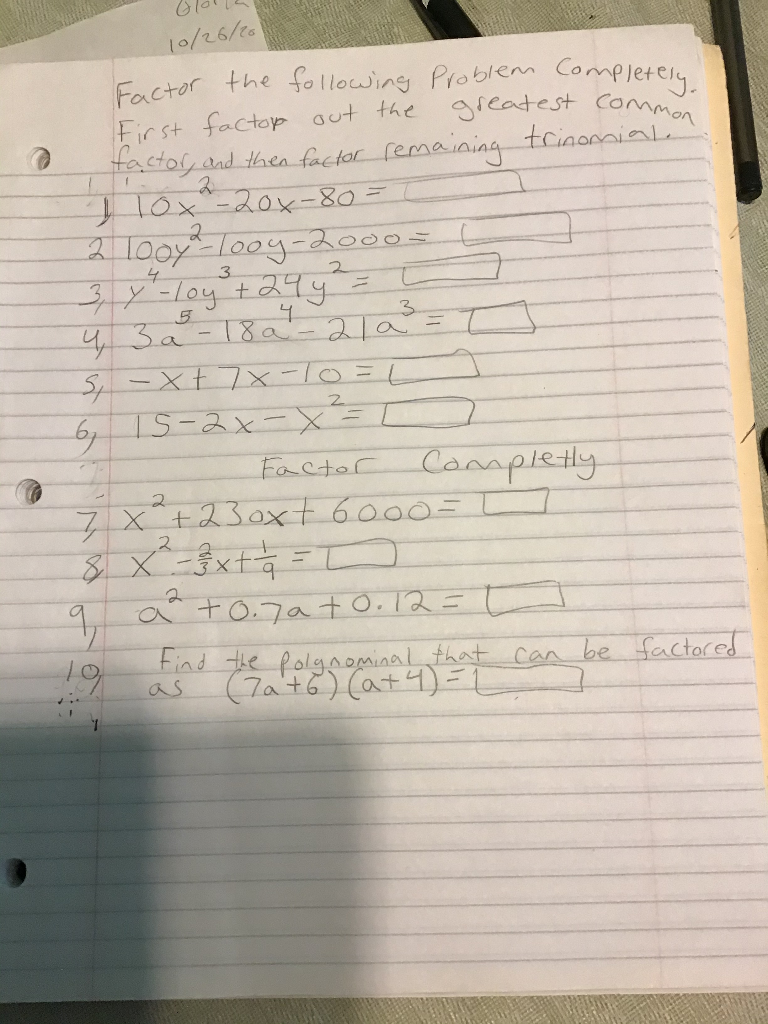 10/26/20
Factor the following Problem Completely.
First factor out the greatest common
factor, and then factor remaining trinomial.
1) 10x² - 20x - 80 =
2 100y² - 100y - 2000 =
3, y⁴ - 10y³ + 24y² =
4, 3a⁵ - 18a⁴ - 21a³ =
5, -x + 7x - 10 =
6, 15 - 2x - x² =
Factor Completly
7, x² + 230x + 6000 =
8, x² - 2/3 x + 1/9 =
9, a² + 0.7a + 0.12 =
10, Find the polynominal that can be factored
as (7a+6)(a+4) =